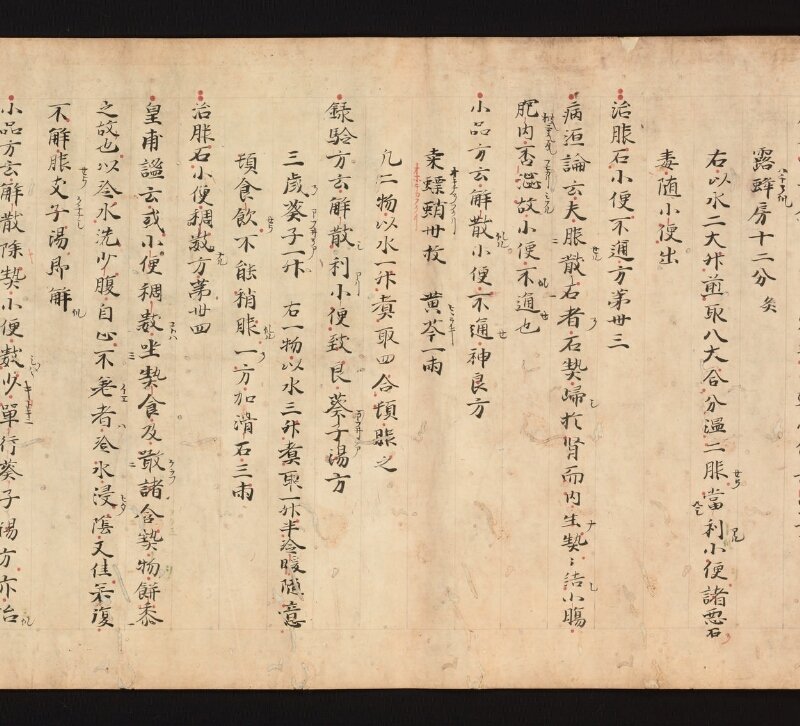 露蜂房十二分炙
右以水二大升煎取八大合分温二服當利小便諸惡石
毒随小便出
治服石小便不通方第卅三
病源論云夫服散石者石𤍠歸於腎而内生𤍠〻結小腸
肥内否澁故小便不通也
小品方云解散小便不通神良方
桒螵蛸卅枚 黄芩一兩
凡二物以水一升煑取四合頓服之
録驗方云解散利小便致良葵子湯方
三歳葵子一升 右一物以水三升煑取一升半冷暖随意
頓食飲不能稍服一方加滑石三兩
治服石小便稠數方第卅四
皇甫謐云或小便稠數坐𤍠食及散諸含𤍠物餅黍
之故也以冷水洗少腹自止不差者冷水浸陰又佳若復
不解服支子湯即解
小品方云解散除𤍠小便數少單行葵子湯方亦治